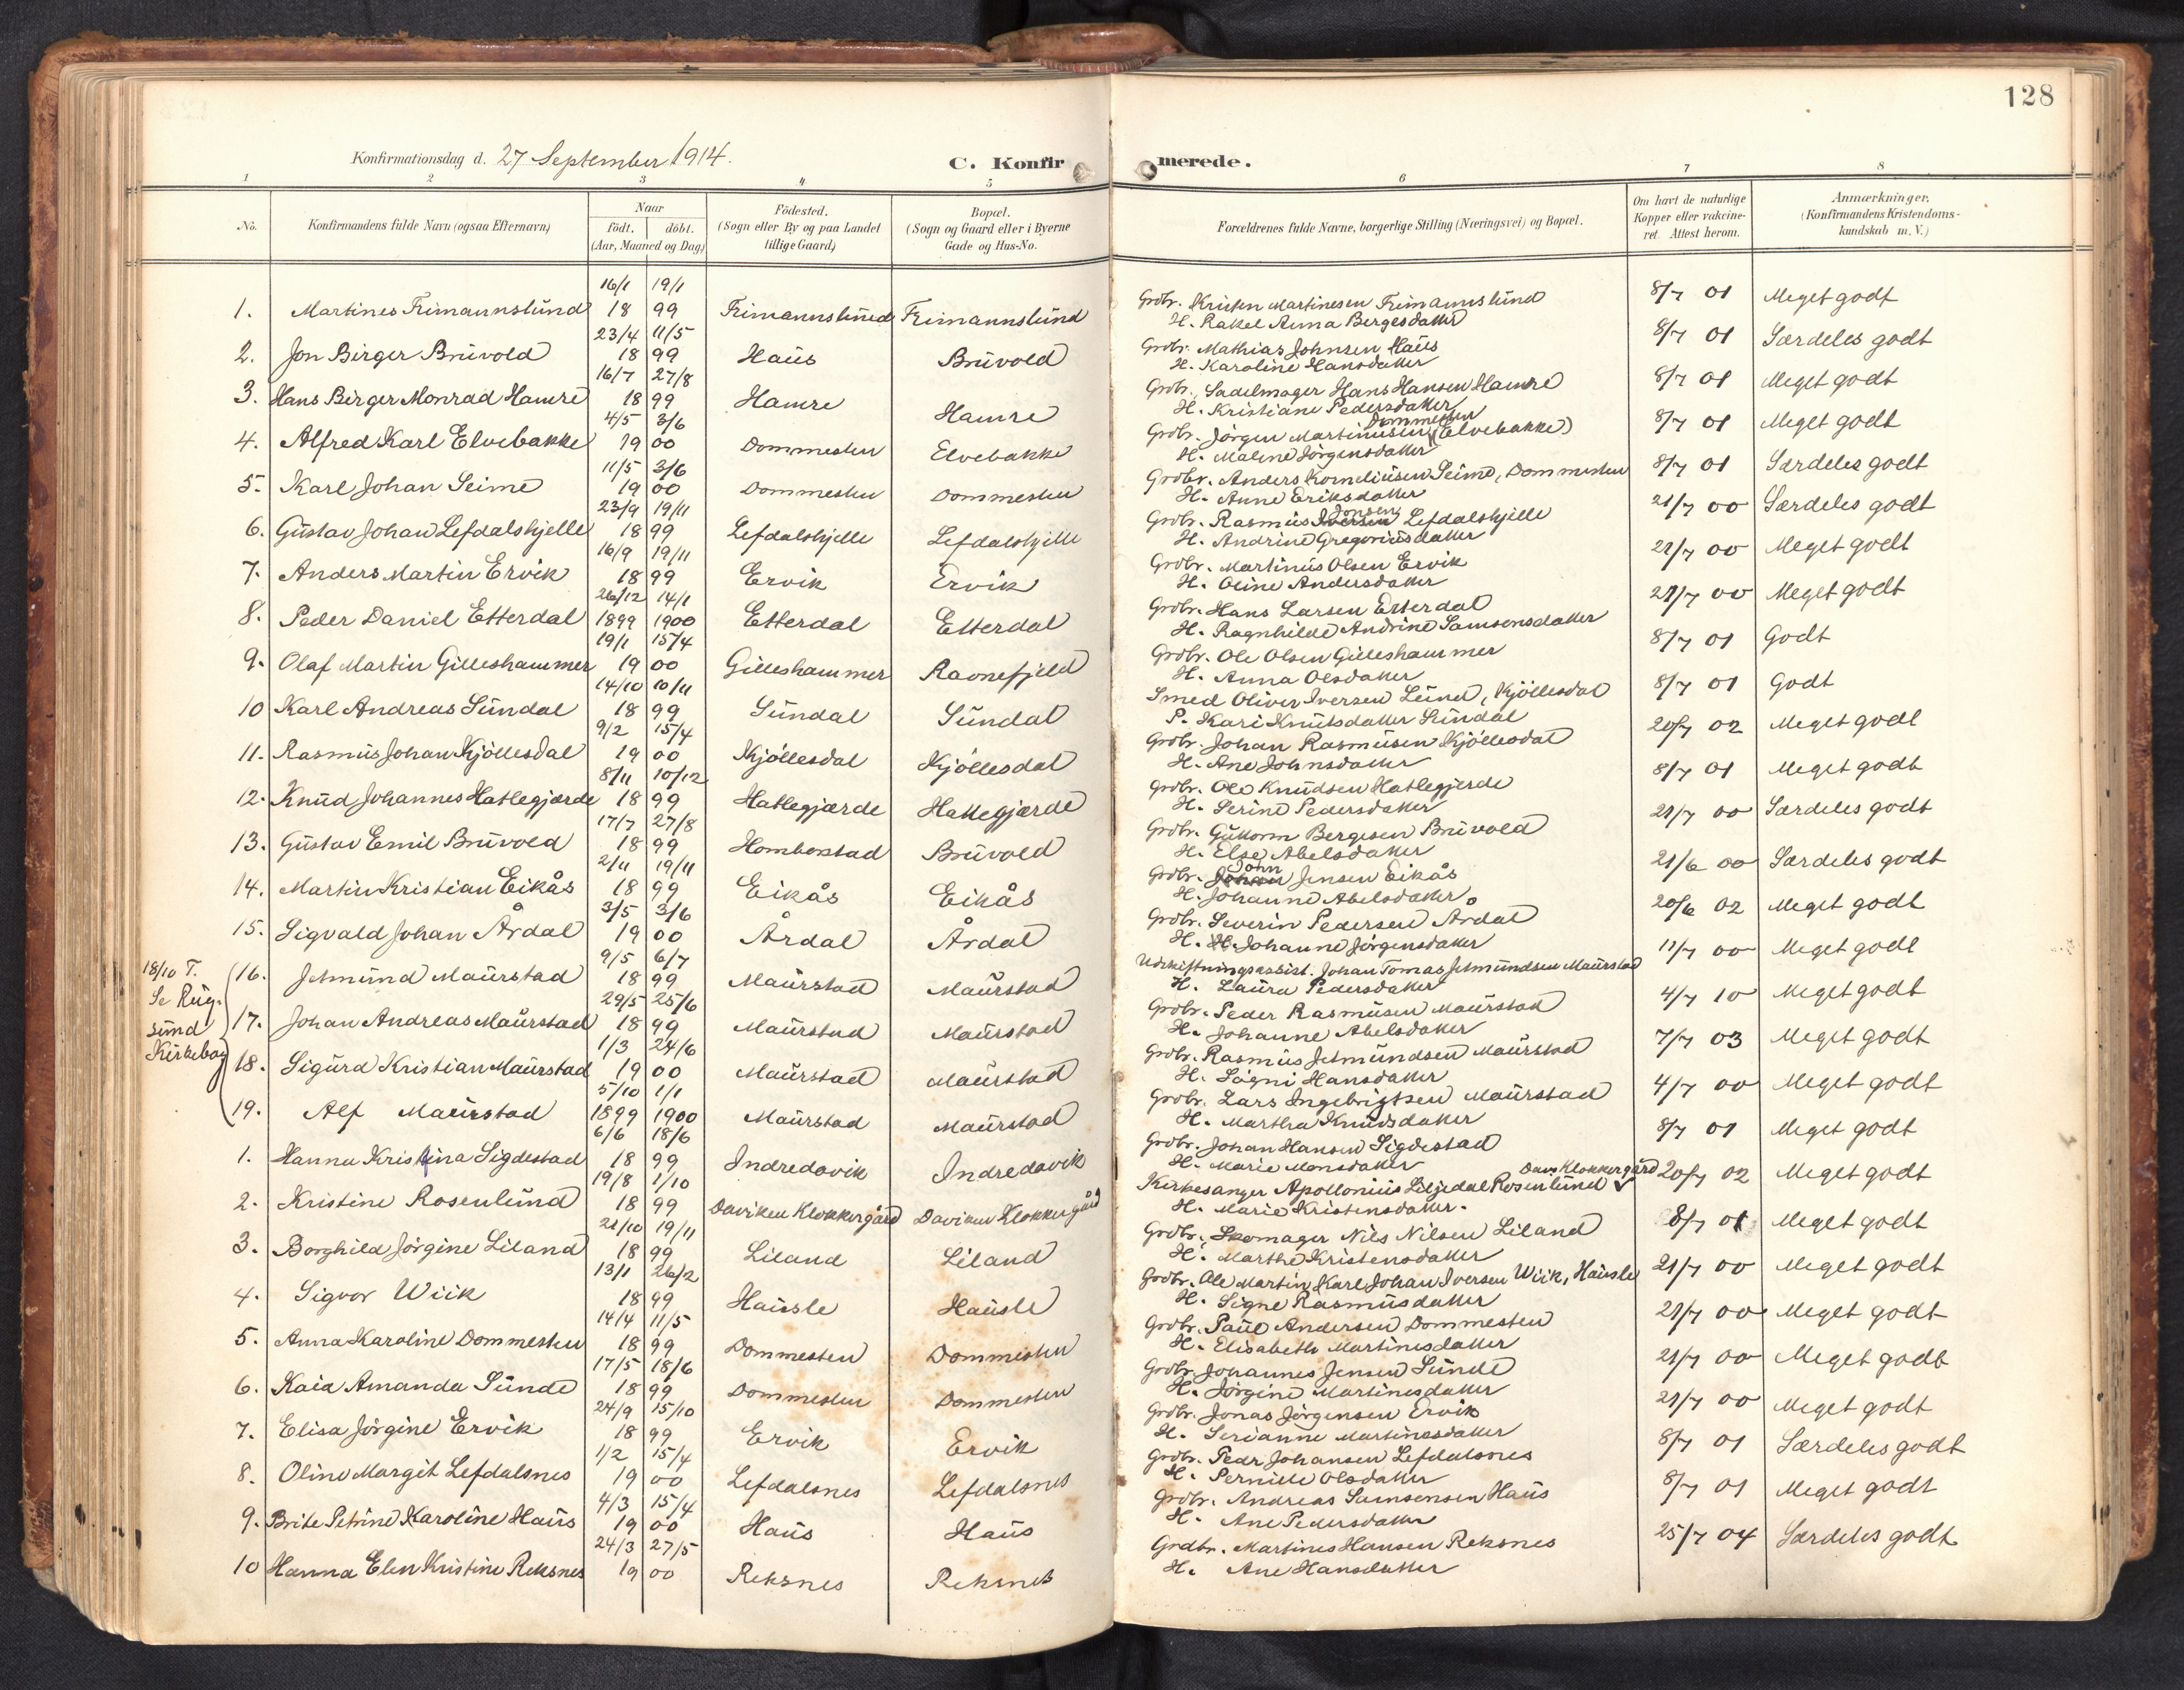 128
Konfirmationsdag d. 27 September 1914.
C. Konfirmerede.
1 2 3 4 5 6 7 8
No.
Konfirmandens fulde Navn (ogsaa Efternavn)
Naar
födt. döbt.
(Aar, Maaned og Dag)
Födested.
(Sogn eller By og paa Landet
tillige Gaard)
Bopæl.
(Sogn og Gaard eller i Byerne
Gade og Hus-No.
Forældrenes fulde Navne, borgerlige Stilling (Næringsvei) og Bopæl.
Om havt de naturlige
Kopper eller vakcine-
ret. Attest herom.
Anmærkninger.
(Konfirmandens Kristendoms-
kundskab m. V.)
16/1 19/1
1. Martines Frimannslund 18 99 Frimannslund Frimannslund Grdbr. Kristen Martinesen Frimannslund 8/7 01 Meget godt
H. Rakel Anna Bergesdatter
23/4 11/5
2. Jon Birger Bruvold 18 99 Haus Bruvold Grdbr. Mathias Johnsen Haus 8/7 01 Særdeles godt
H. Karoline Hansdatter
16/7 27/8
3. Hans Birger Monrad Hamre 18 99 Hamre Hamre Grdbr. Sadelmager Hans Hansen Hamre 8/7 01 Meget godt
H. Kristiane Pedersdatter
4/5 3/6
Dommesten
4. Alfred Karl Elvebakke 19 00 Dommesten Elvebakke Grdbr. Jörgen Martinusen (Elvebakke) 8/7 01 Meget godt
H. Maline Jörgensdatter
11/5 3/6
5. Karl Johan Seime 19 00 Dommesten Dommesten Grdbr. Anders Korneliusen Seime, Dommesten 8/7 01 Særdeles godt
H. Anne Eriksdatter
23/9 19/11
Jonsen
6. Gustav Johan Lefdalshjelle 18 99 Lefdalshjelle Lefdalshjelle Grdbr. Rasmus Iversen Lefdalshjelle 21/7 00 Særdeles godt
H. Andrine Gregoriusdatter
16/9 19/11
7. Anders Martin Ervik 18 99 Ervik Ervik Grdbr. Martinus Olsen Ervik 21/7 00 Meget godt
H. Oline Andersdatter
26/12 14/1
8. Peder Daniel Etterdal 1899 1900 Etterdal Etterdal Grdbr. Hans Larsen Etterdal 21/7 00 Meget godt
H. Ragnhilde Andrine Samsonsdatter
19/1 15/4
9. Olaf Martin Gilleshammer 19 00 Gilleshammer Ravnefjeld Grdbr. Ole Olsen Gilleshammer 8/7 01 Godt
H. Anna Olsdatter
14/10 10/11
10 Karl Andreas Sundal 18 99 Sundal Sundal Smed Oliver Iversen Leund, Kjöllesdal 8/7 01 Godt
P. Kari Knutsdatter Sundal
9/2 15/4
11. Rasmus Johan Kjöllesdal 19 00 Kjöllesdal Kjöllesdal Grdbr. Johan Rasmusen Kjöllesdal 20/7 02 Meget godt
H. Ane Johnsdatter
8/11 10/12
12. Knud Johannes Hatlegjærde 18 99 Hatlegjærde Hatlegjærde Grdbr. Ole Knudsen Hatlegjerde 8/7 01 Meget godt
H. Serine Pedersdatter
17/7 27/8
13. Gustav Emil Bruvold 18 99 Homborstad Bruvold Grdbr. Guttorm Bergesen Bruvold 21/7 00 Særdeles godt
H. Else Abelsdatter
2/11 19/11
John
14. Martin Kristian Eikås 18 99 Eikås Eikås Grdbr. Johan Jensen Eikås 21/6 00 Særdeles godt
H. Johanne Abelsdatter
3/5 3/6
15. Sigvald Johan Årdal 19 00 Årdal Årdal Grdbr. Severin Pedersen Årdal 20/6 02 Meget godt
H. Johanne Jörgensdatter
18/10 T.
Se Rug-
sund
Kirkebog
9/5 6/7
16. Jetmund Maurstad 18 99 Maurstad Maurstad Udskiftningsassist. Johan Tomas Jetmundsen Maurstad 11/7 00 Meget godt
H. Laura Pedersdatter
29/5 25/6
17. Johan Andreas Maurstad 18 99 Maurstad Maurstad Grdbr. Peder Rasmusen Maurstad 4/7 10 Meget godt
H. Johanne Abelsdatter
1/3 24/6
18. Sigurd Kristian Maurstad 19 00 Maurstad Maurstad Grdbr. Rasmus Jetmundsen Maurstad 7/7 03 Meget godt
H. Lagni Hansdatter
5/10 1/1
19. Alf Maurstad 1899 1900 Maurstad Maurstad Grdbr. Lars Ingebrigtsen Maurstad 4/7 00 Meget godt
H. Martha Knudsdatter
6/6 18/6
1. Hanna Kristina Sigdestad 18 99 Indredavik Indredavik Grdbr. Johan Hansen Sigdestad 8/7 01 Meget godt
H. Marie Monsdatter
19/8 1/10
Dav. Klokkergård
2. Kristine Rosenlund 18 99 Daviken Klokkergård Daviken Klokkergård Kirkesanger Apollonius Liljedal Rosenlund 20/7 02 Meget godt
H. Marie Kristensdatter.
21/10 19/11
3. Borghild Jörgine Liland 18 99 Liland Liland Grdbr. Skomager Nils Nilsen Liland 8/7 01 Meget godt
H. Marthe Kristensdatter
13/1 26/2
4. Sigvor Wiik 18 99 Hausle Hausle Grdbr. Ole Martin Karl Johan Iversen Wiik, Hausle 21/7 00 Meget godt
H. Signe Rasmusdatter
14/4 11/5
5. Anna Karoline Dommesten 18 99 Dommesten Dommesten Grdbr. Paul Andersen Dommesten 21/7 00 Meget godt
H. Elisabeth Martinesdatter
17/5 18/6
6. Kaia Amanda Sunde 18 99 Dommesten Dommesten Grdbr. Johannes Jensen Sunde 21/7 00 Meget godt
H. Jörgine Martinesdatter
24/9 15/10
7. Elisa Jörgine Ervik 18 99 Ervik Ervik Grdbr. Jonas Jörgensen Ervik 21/7 00 Meget godt
H. Serianne Martinesdatter
1/2 15/4
8. Oline Margit Lefdalsnes 19 00 Lefdalsnes Lefdalsnes Grdbr. Pedr Johansen Lefdalsnes 8/7 01 Særdeles godt
H. Pernille Olsdatter
4/3 15/4
9. Brite Petrine Karoline Haus 19 00 Haus Haus Grdbr. Andreas Samsonsen Haus 8/7 01 Meget godt
H. Ane Pedersdatter
24/3 27/5
10 Hanna Elen Kristine Reksnes 19 00 Reksnes Reksnes Grdbr. Martines Hansen Reksnes 25/7 04 Særdeles godt
H. Ane Hansdatter